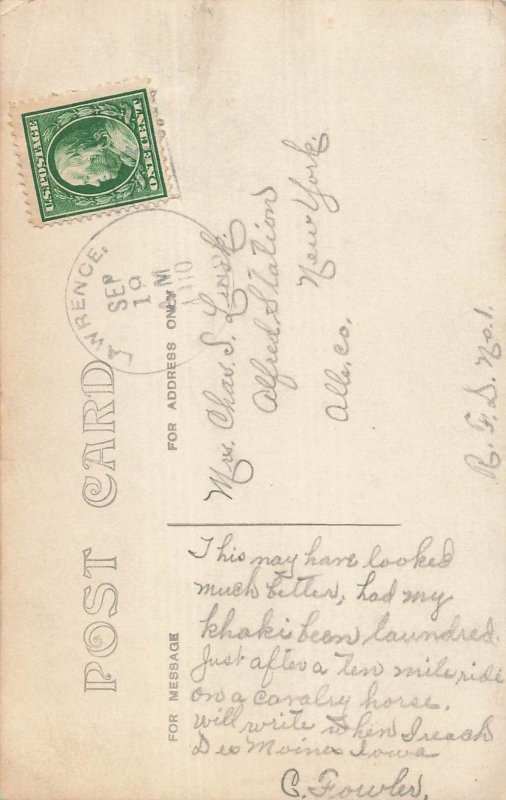 POST CARD
U.S. POSTAGE
ONE CENT
LAWRENCE,
SEP
19
M
FOR ADDRESS ONLY
Mrs. Chas. S. Link.
Alfred Station
New York.
Alle. co.
R. F. D. No. 1.
FOR MESSAGE
This may have looked
much better, had my
khaki been laundred.
Just after a ten mile ride
on a cavalry horse.
will write when I reach
Des Moines Iowa
C. Fowler.